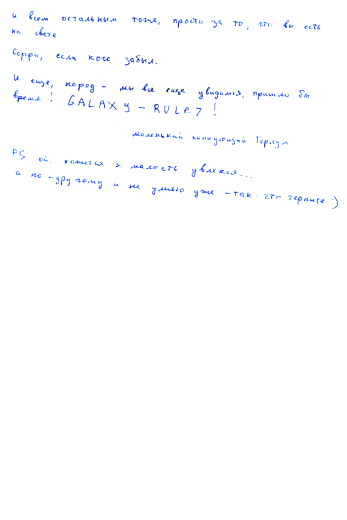 и всем остальным тоже, просто за то, что вы есть
на свете
Сорри, если кого забыл.
И еще, народ - мы все еще увидимся, пришло бы
время! GALAXY - RULEZ!
маленький хиппующий
PS ой, кажется я малость увлекся...
а по-другому и не умею уже - так что терпите :)